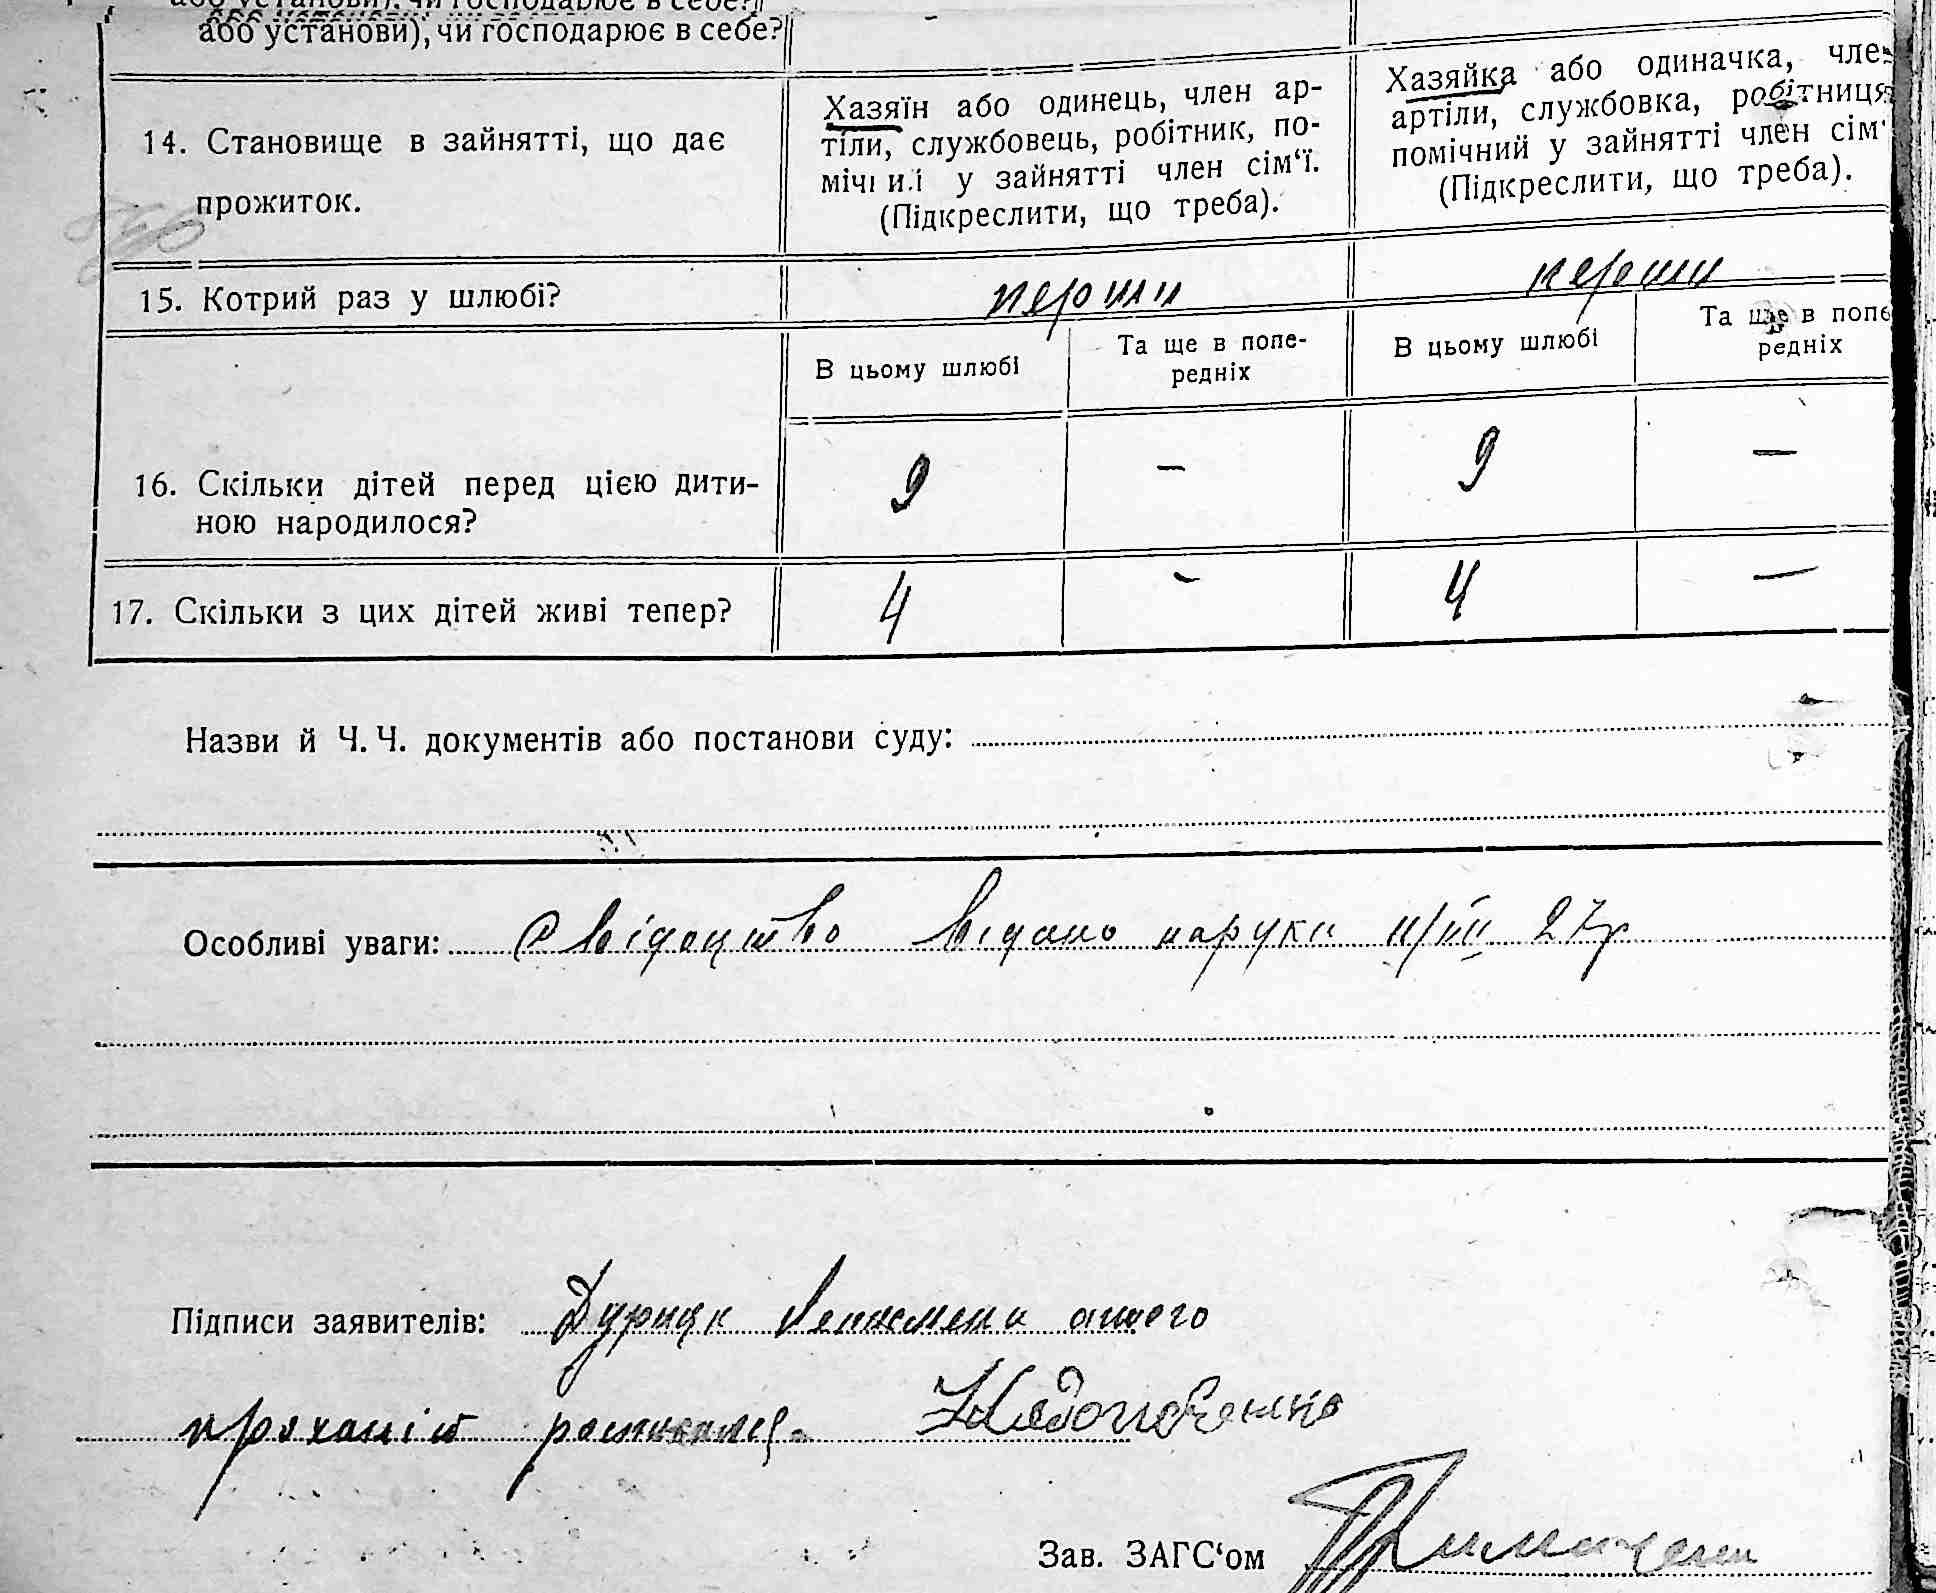 або установи), чи господарює в себе?
14. Становище в зайнятті, що дає
прожиток.
Хазяїн або одинець, член ар-
тіли, службовець, робітник, по-
мічн и.і у зайнятті член сім‘ї.
(Підкреслити, що треба).
Хазяйка або одиначка, член
артіли, службовка, робітниця,
помічний у зайнятті член сім'
(Підкреслити, що треба).
15. Котрий раз у шлюбі?
перший
перший
В цьому шлюбі
Та ще в попе-
редніх
В цьому шлюбі
Та ще в попе
редніх
16. Скільки дітей перед цією дити-
ною народилося?
9 - 9 -
17. Скільки з цих дітей живі тепер?
4 - 4 -
Назви й Ч. Ч. документів або постанови суду:
Особливі уваги: Свідоцтво видано наруки 11/III 27р
Підписи заявителів:
Зав. ЗАГС‘ом